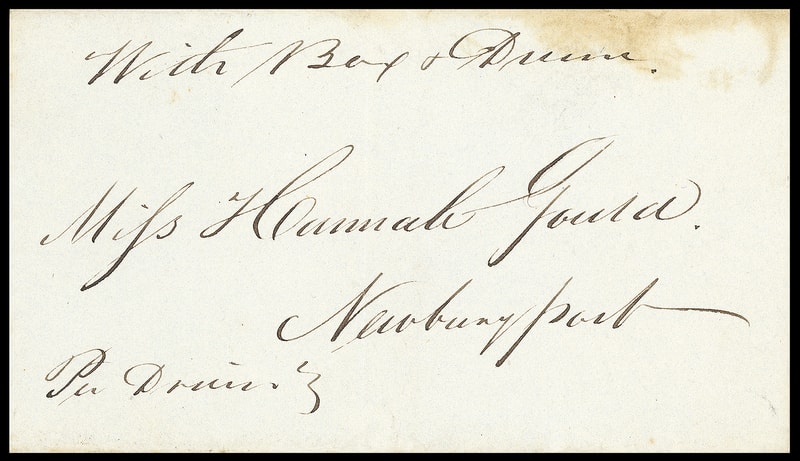 With Box & Drum.
Miss Hannah Gould.
Newburyport
Per Drum.